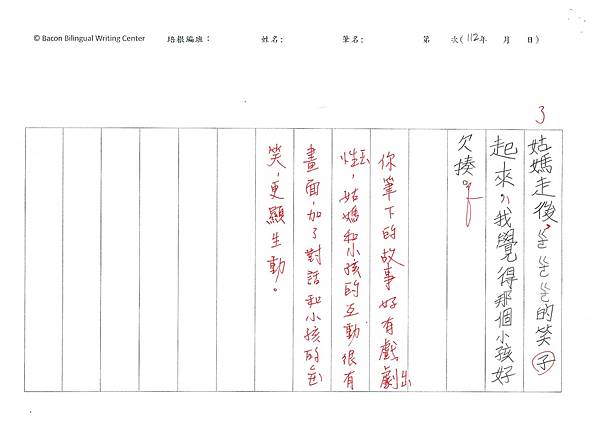 © Bacon Bilingual Writing Center 培根編班： 姓名： 筆名： 第 次(112年 月 日)
3
姑媽走後，ㄍㄜㄍㄜㄍㄜ的笑了
起來，我覺得那個小孩好
欠揍。
你筆下的故事好有戲劇出
性，姑媽和小孩的互動很有
畫面，加了對話和小孩的
笑，更顯生動。